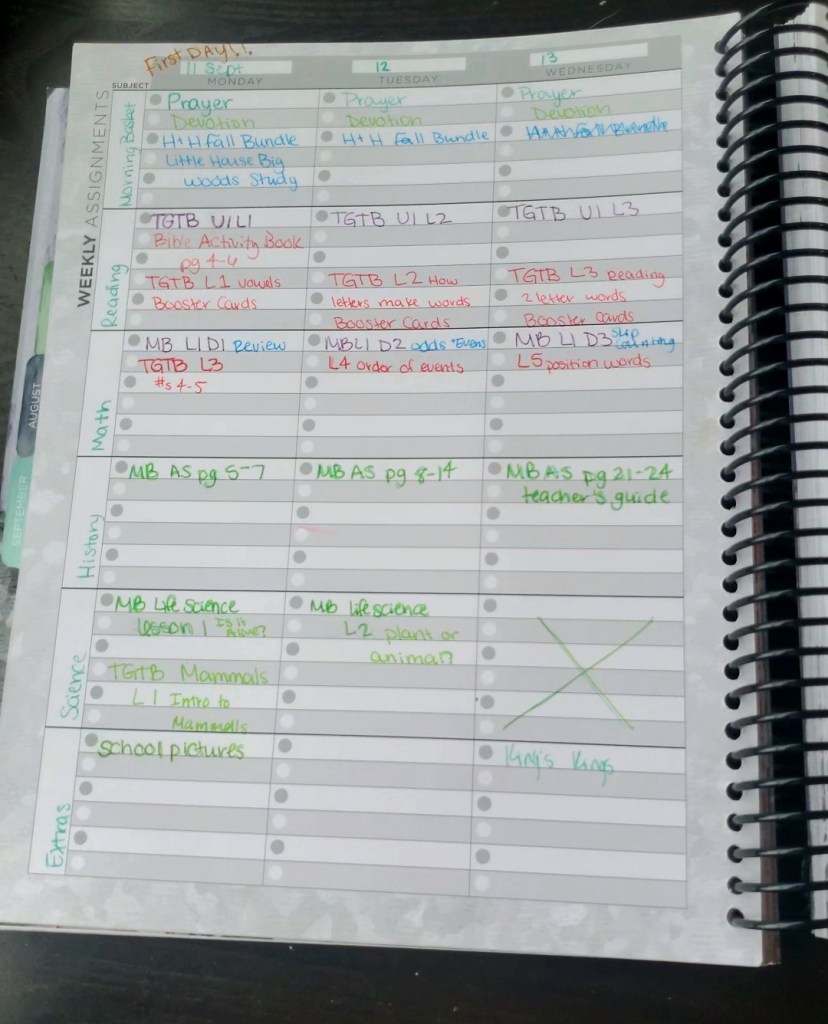 First DAY!!
11 Sept
12
13
SUBJECT
MONDAY
TUESDAY
WEDNESDAY
WEEKLY ASSIGNMENTS
AUGUST
SEPTEMBER
Morning Basket
Prayer
Devotion
H+H Fall Bundle
Little House Big
Woods Study
Prayer
Devotion
H+H Fall Bundle
Prayer
Devotion
Reading
TGTB U1 L1
Bible Activity Book
pg 4-6
TGTB L1 vowels
Booster Cards
TGTB U1 L2
TGTB L2 How
letters make words
Booster Cards
TGTB U1 L3
TGTB L3 Reading
2 letter words
Booster Cards
Math
MB L1D1 Review
TGTB L3
#s 4-5
MBL1 D2 odds + Evens
L4 order of events
MB L1 D3 Skip
counting
L5 position words
History
MB AS pg 5-7
MB AS pg 8-14
MB AS pg 21-24
teacher's guide
Science
MB Life Science
lesson 1 Is it
Alive?
TGTB Mammals
L1 Intro to
Mammals
MB life science
L2 plant or
animal?
Extras
School pictures